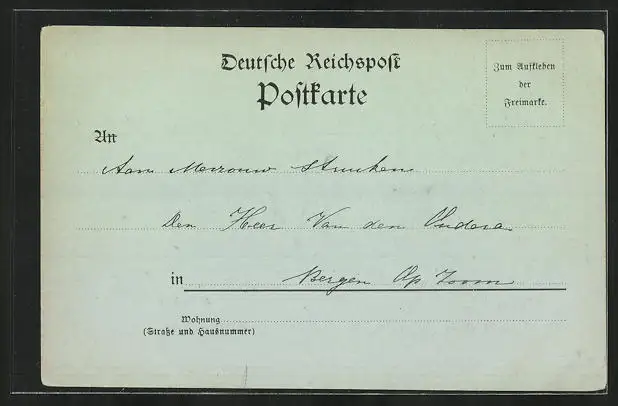 Deutsche Reichspost
Postkarte
Zum Aufkleben
der
Freimarke.
An
Aan Mevrouw Strucken
Den Heer Van den Oudera
in Bergen Op Zoom
Wohnung
(Straße und Hausnummer)